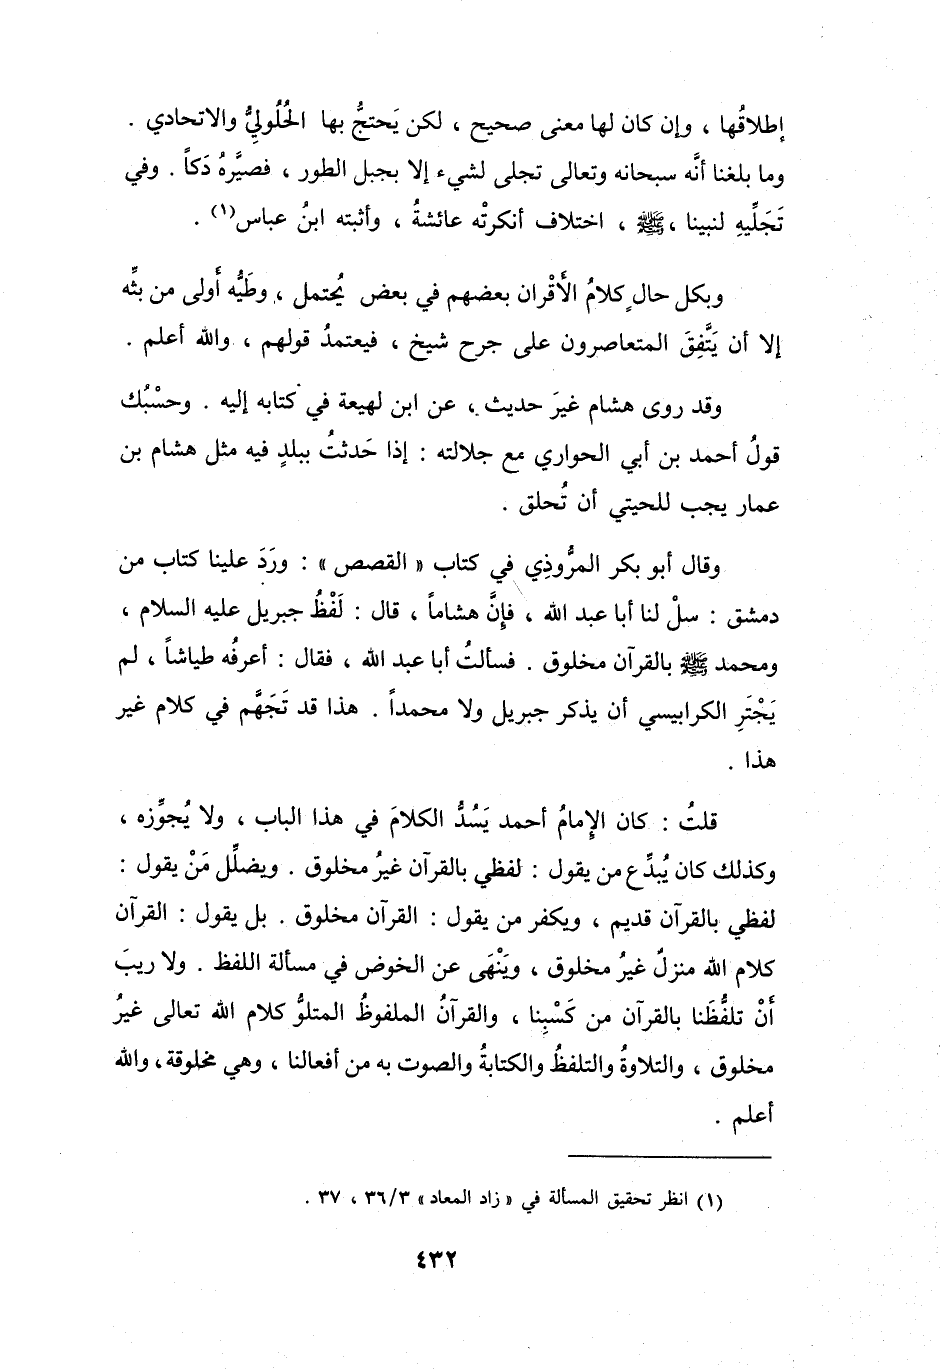 إطلاقُها ، وإن كان لها معنى صحيح ، لكن يَحتجُّ بها الحُلُوليُّ والاتحادي .
وما بلغنا أنَّه سبحانه وتعالى تجلى لشيء إلا بجبل الطور ، فصيَّرهُ دَكاً . وفي
تَجَلِّيهِ لنبينا ، ﷺ ، اختلاف أنكرتْه عائشةُ ، وأثبته ابنُ عباس(١) .
وبكل حالٍ كلامُ الأَقْران بعضهم في بعض يُحتمل ، وطَيُّه أَولى من بثِّه
إلا أن يَتَّفِقَ المتعاصرون على جرح شيخ ، فيعتمدُ قولهم ، والله أعلم .
وقد روى هشام غيرَ حديث ، عن ابن لهيعة في كتابه إليه . وحسْبُك
قولُ أحمد بن أبي الحواري مع جلالته : إذا حَدثتُ ببلدٍ فيه مثل هشام بن
عمار يجب للحيتي أن تُحلق .
وقال أبو بكر المرُّوذِي في كتاب « القصص » : ورَدَ علينا كتاب من
دمشق : سلْ لنا أبا عبد الله ، فإنَّ هشاماً ، قال : لَفْظُ جبريل عليه السلام ،
ومحمد ﷺ بالقرآن مخلوق . فسألتُ أبا عبد الله ، فقال : أعرفُه طياشاً ، لم
يَجْتَرِ الكرابيسي أن يذكر جبريل ولا محمداً . هذا قد تَجَهَّم في كلام غير
هذا .
قلتُ : كان الإمامُ أحمد يَسُدُّ الكلامَ في هذا الباب ، ولا يُجوِّزه ،
وكذلك كان يُبدِّع من يقول : لفظي بالقرآن غيرُ مخلوق . ويضلِّل مَنْ يقول :
لفظي بالقرآن قديم ، ويكفر من يقول : القرآن مخلوق . بل يقول : القرآن
كلام الله منزلٌ غيرُ مخلوق ، ويَنْهَى عن الخوض في مسألة اللفظ . ولا ريبَ
أَنْ تلفُّظَنا بالقرآن من كَسْبِنا ، والقرآنُ الملفوظُ المتلوُّ كلام الله تعالى غيرُ
مخلوق ، والتلاوةُ والتلفظُ والكتابةُ والصوت به من أفعالنا ، وهي مخلوقة، والله
أعلم .
(١) انظر تحقيق المسألة في « زاد المعاد » ٣٦/٣ ، ٣٧ .
٤٣٢